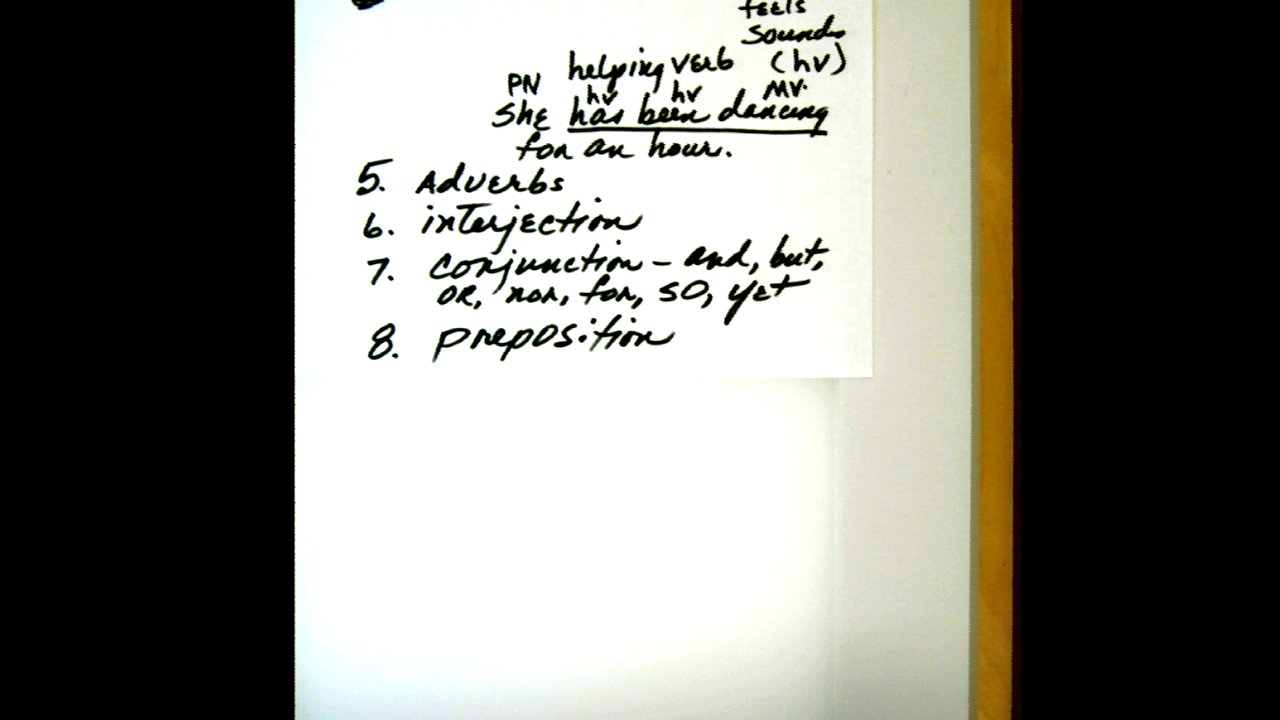 feels
sounds
helping verb (hv)
PN hv hv mv.
She has been dancing
for an hour.
5. Adverbs
6. interjection
7. conjunction – and, but,
OR, nor, for, so, yet
8. preposition